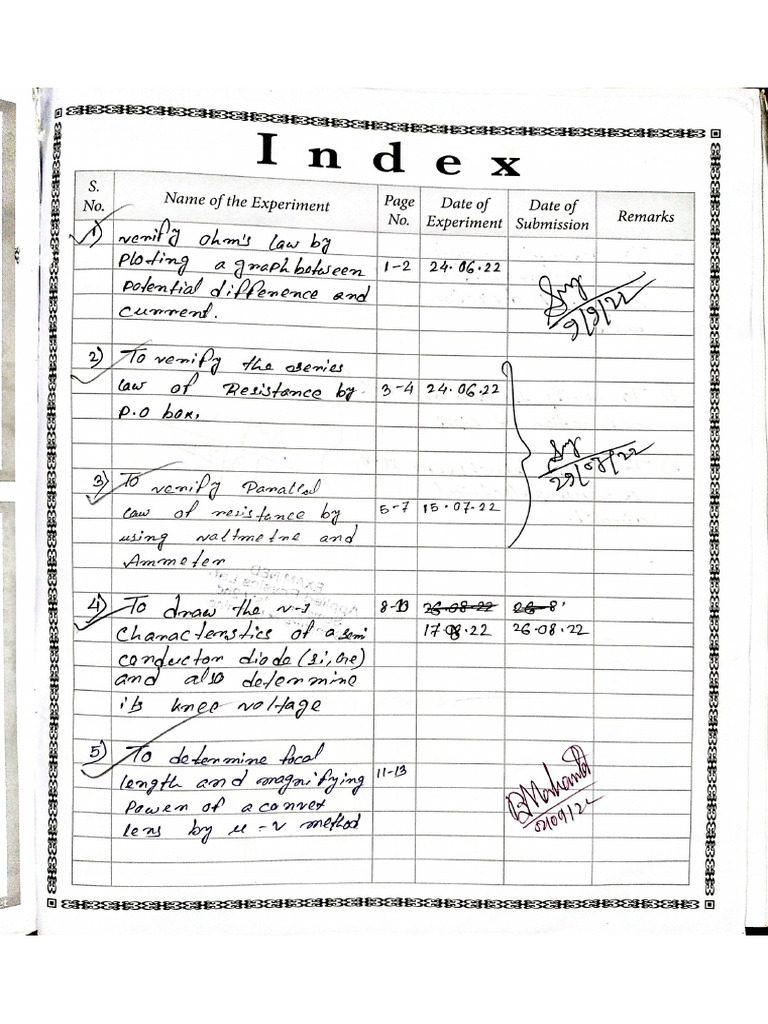 Index
S. No. Name of the Experiment Page No. Date of Experiment Date of Submission Remarks
1) Verify Ohm's Law by
Ploting a graph between 1-2 24.06.22
Potential difference and
Current.
9/9/22
2) To verify the series
law of Resistance by 3-4 24.06.22
P.O box,
29/08/22
3) To verify Parallel
law of resistance by 5-7 15.07.22
using and
Ammeter
4) To draw the v-I 8-10 26.08.22 26-8
Characterstics of a semi 17.08.22 26.08.22
conductor diode (si, Ge)
and also determine
its knee voltage
5) To determine focal
length and magnifying 11-13
Power of a convex
lens by u-v method
02/09/22